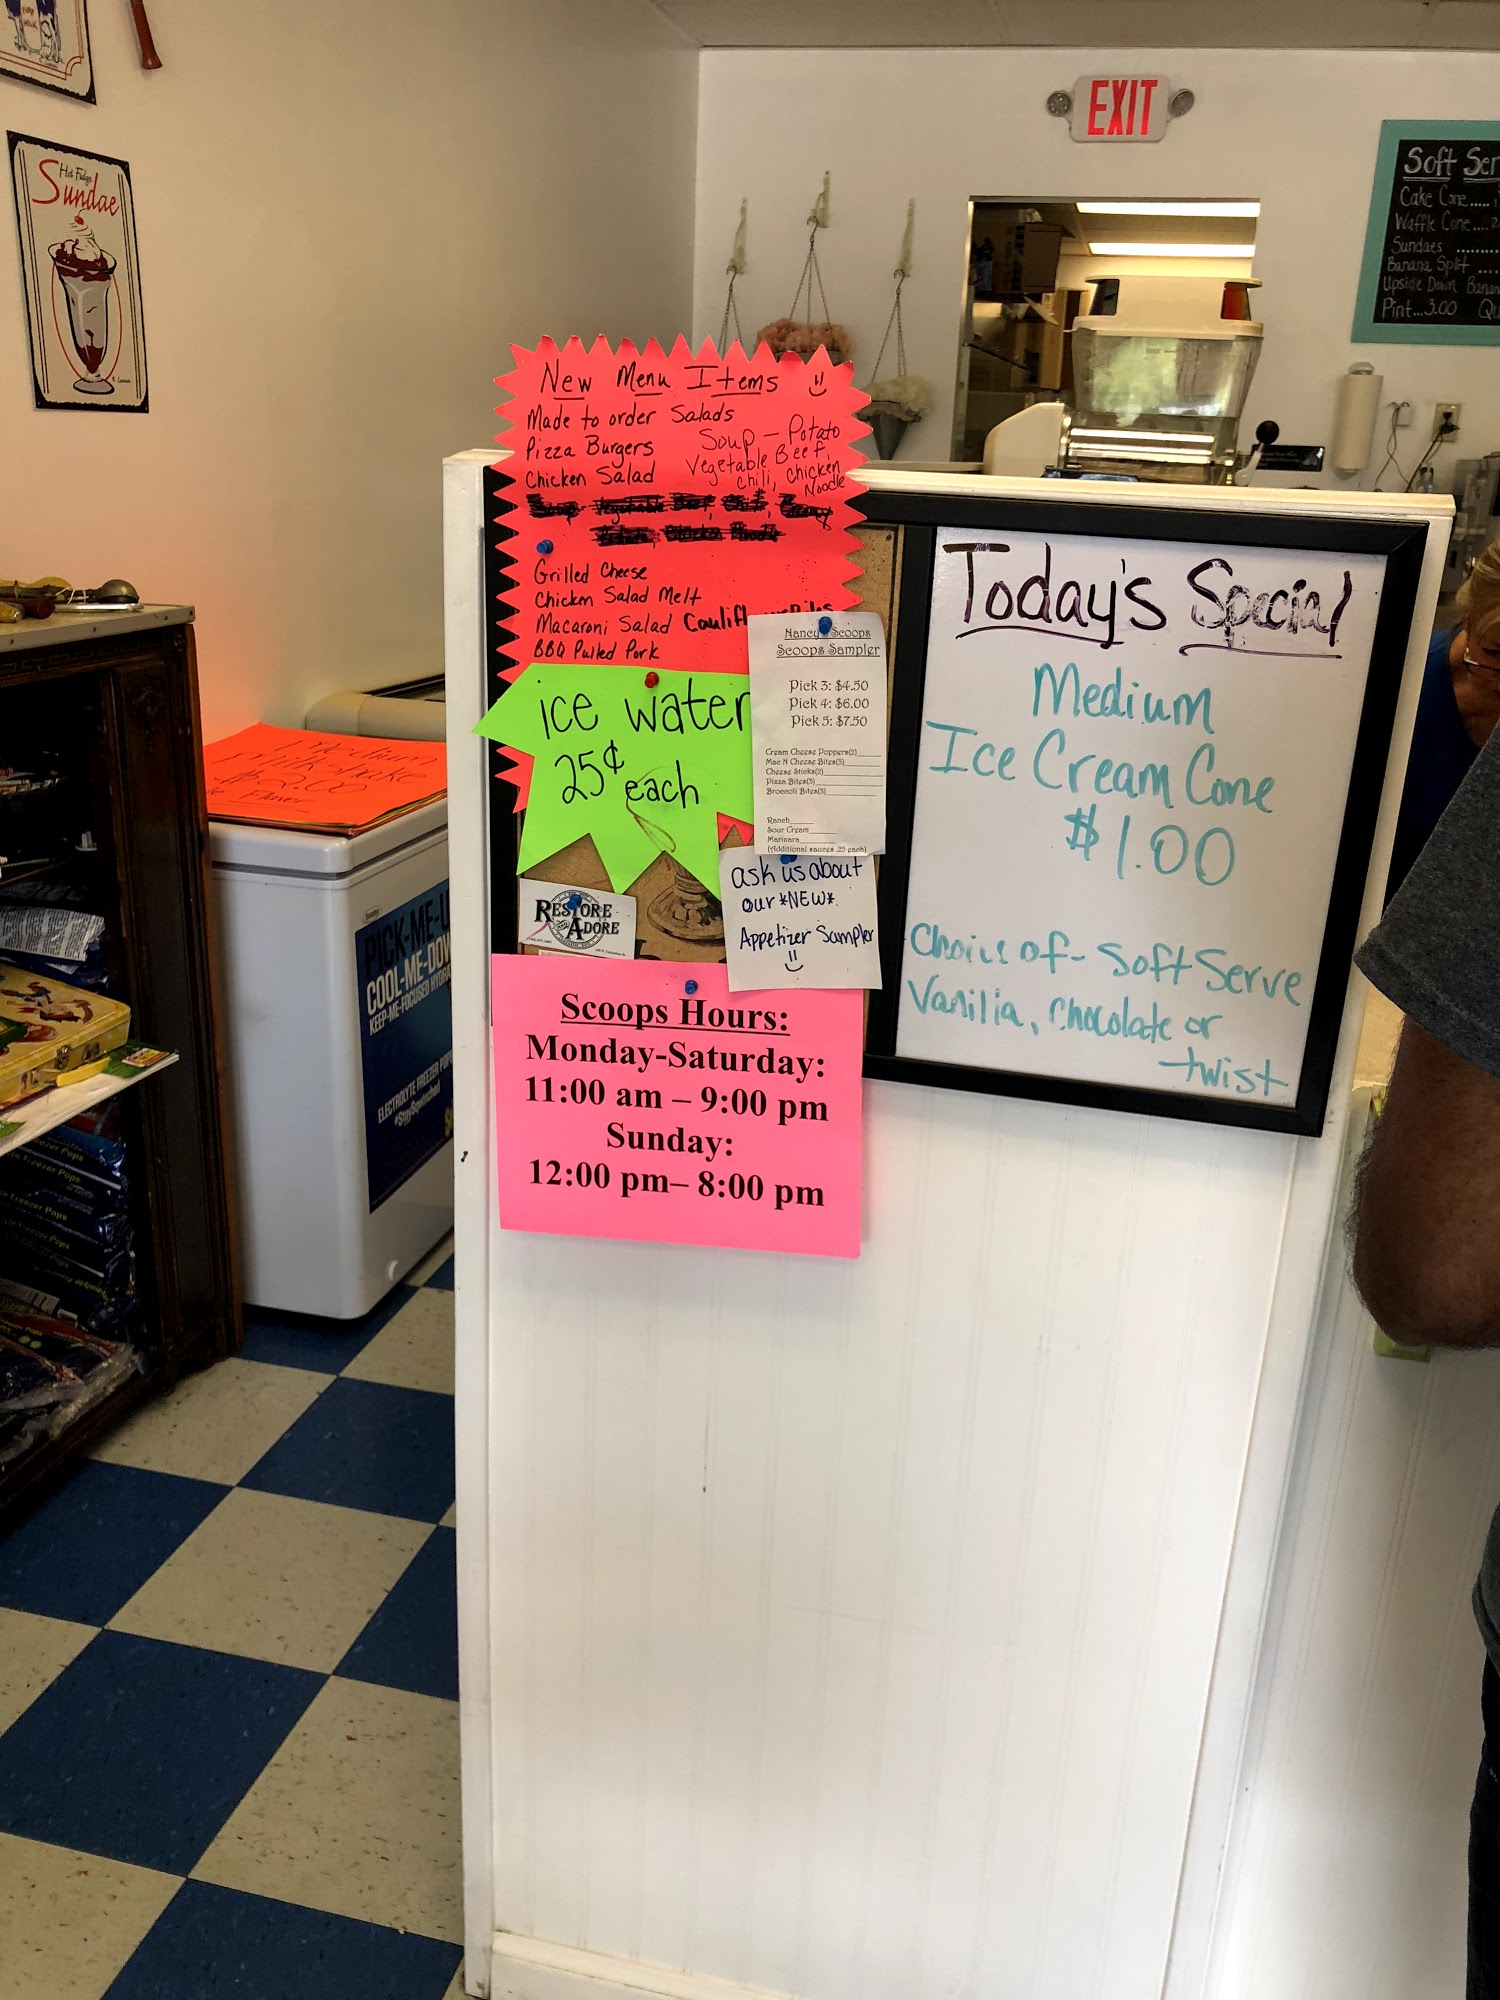 Hot Fudge
Sundae
EXIT
Soft Ser
Cake Cone.....
Waffle Cone....2
Sundaes
Banana Split ....
Upside Down Banan
Pint...3.00 Qu
New Menu Items
Made to order Salads
Pizza Burgers
Chicken Salad
Soup - Potato
Vegetable Beef,
chili, chicken
Noodle
Grilled Cheese
Chicken Salad Melt
Macaroni Salad
BBQ Pulled Pork
ice water
25¢
each
Nancy's Scoops
Scoops Sampler
Pick 3: $4.50
Pick 4: $6.00
Pick 5: $7.50
Cream Cheese Poppers(2)
Mac N Cheese Bites(3)
Cheese Sticks(2)
Pizza Bites(3)
Broccoli Bites(3)
Ranch
Sour Cream
Marinara
(Additional sauces .25 each)
ask us about
our *NEW*
Appetizer Sampler
RESTORE
AND
ADORE
Scoops Hours:
Monday-Saturday:
11:00 am – 9:00 pm
Sunday:
12:00 pm– 8:00 pm
Today's Special
Medium
Ice Cream Cone
$1.00
Choice of - Soft Serve
Vanilia, Chocolate or
twist
1 Medium
Milkshake
$2.00
Flavor
PICK-ME-U
COOL-ME-DOW
KEEP-ME-FOCUSED HYDRA
ELECTROLYTE FREEZER POPS
#StaySqwinched
Freezer Pops
Freezer Pops